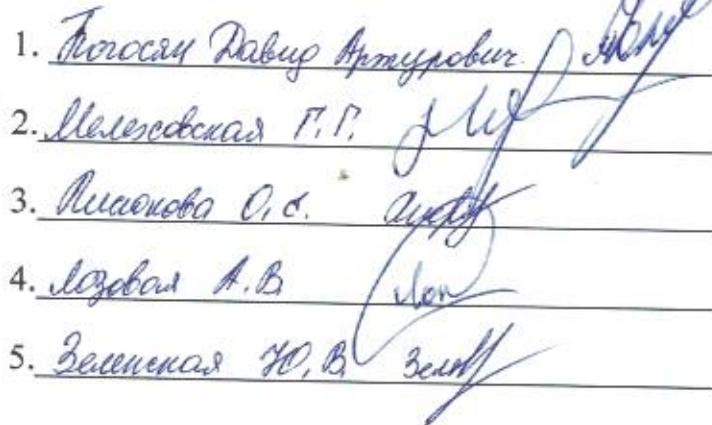 1. Погосян Давид Артурович
2. Мелеховская Г.Г.
3. О.С.
4. Лозовая А.В.
5. Зеленская Ю.В.